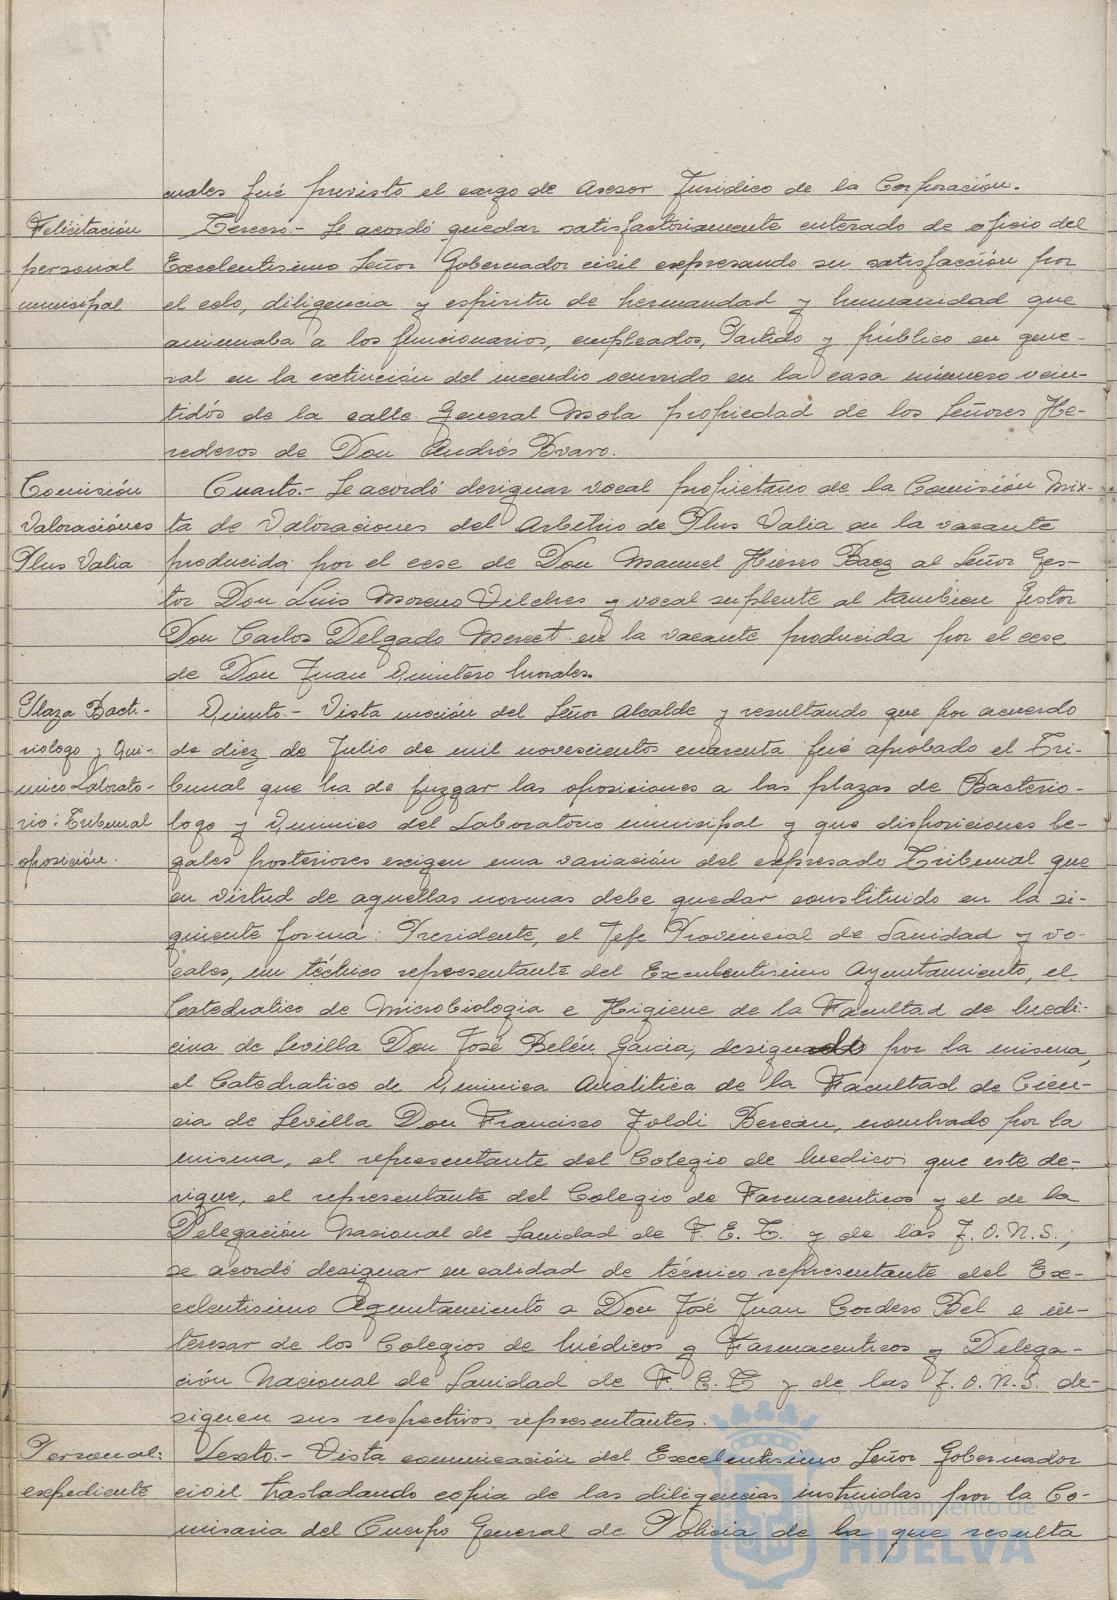 cuales fué previsto el cargo de Asesor Juridico de la Corporación.
Felicitación
personal
municipal
Tercero.- Se acordó quedar satisfactoriamente enterado de oficio del
Excelentisimo Señor Gobernador civil expresando su satisfacción por
el celo, diligencia y espiritu de hermandad y humanidad que
animaba a los funcionarios, empleados, Partido y público en gene-
ral en la extinción del incendio ocurrido en la casa número vein-
tidós de la calle General Mola propiedad de los Señores He-
rederos de Don Andrés Bravo.
Comisión
Valoraciónes
Plus Valia
Cuarto.- Se acordó designar vocal propietario de la Comisión Mix-
ta de Valoraciones del Arbitrio de Plus Valia en la vacante
producida por el cese de Don Manuel Hierro Baez al Señor Ges-
tor Don Luis Moreno Vilches y vocal suplente al tambien Gestor
Don Carlos Delgado Mercet en la vacante producida por el cese
de Don Juan Quintero Morales.
Plaza Bacte-
riologo y Qui-
mico Laborato-
rio: Tribunal
oposición.
Quinto.- Vista moción del Señor Alcalde y resultando que por acuerdo
de diez de Julio de mil novescientos cuarenta fué aprobado el Tri-
bunal que ha de juzgar las oposiciones a las plazas de Bacterio-
logo y Quimico del Laboratorio municipal y que disposiciones le-
gales posteriores exigen una variación del expresado Tribunal que
en virtud de aquellas normas debe quedar constituido en la si-
guiente forma: Presidente, el Jefe Provincial de Sanidad y vo-
cales, un técnico representante del Excelentisimo Ayuntamiento, el
Catedratico de Microbiologia e Higiene de la Facultad de Medi-
cina de Sevilla Don José Belén Garcia, designado por la misma,
el Catedratico de Quimica Analitica de la Facultad de Cien-
cia de Sevilla Don Francisco Yoldi Bereau, nombrado por la
misma, el representante del Colegio de Medicos que este de-
signe, el representante del Colegio de Farmaceuticos y el de la
Delegación Nacional de Sanidad de F. E. T. y de las J. O. N. S.,
se acordó designar en calidad de técnico representante del Ex-
celentisimo Ayuntamiento a Don José Juan Cordero Bel e in-
teresar de los Colegios de Médicos y Farmaceuticos y Delega-
ción Nacional de Sanidad de F. E. T. y de las J. O. N. S. de-
signen sus respectivos representantes.
Personal:
expediente
Sexto.- Vista comunicación del Excelentisimo Señor Gobernador
civil trasladando copia de las diligencias instruidas por la Co-
misaria del Cuerpo General de Policia de la que resulta
Ayuntamiento de
HUELVA